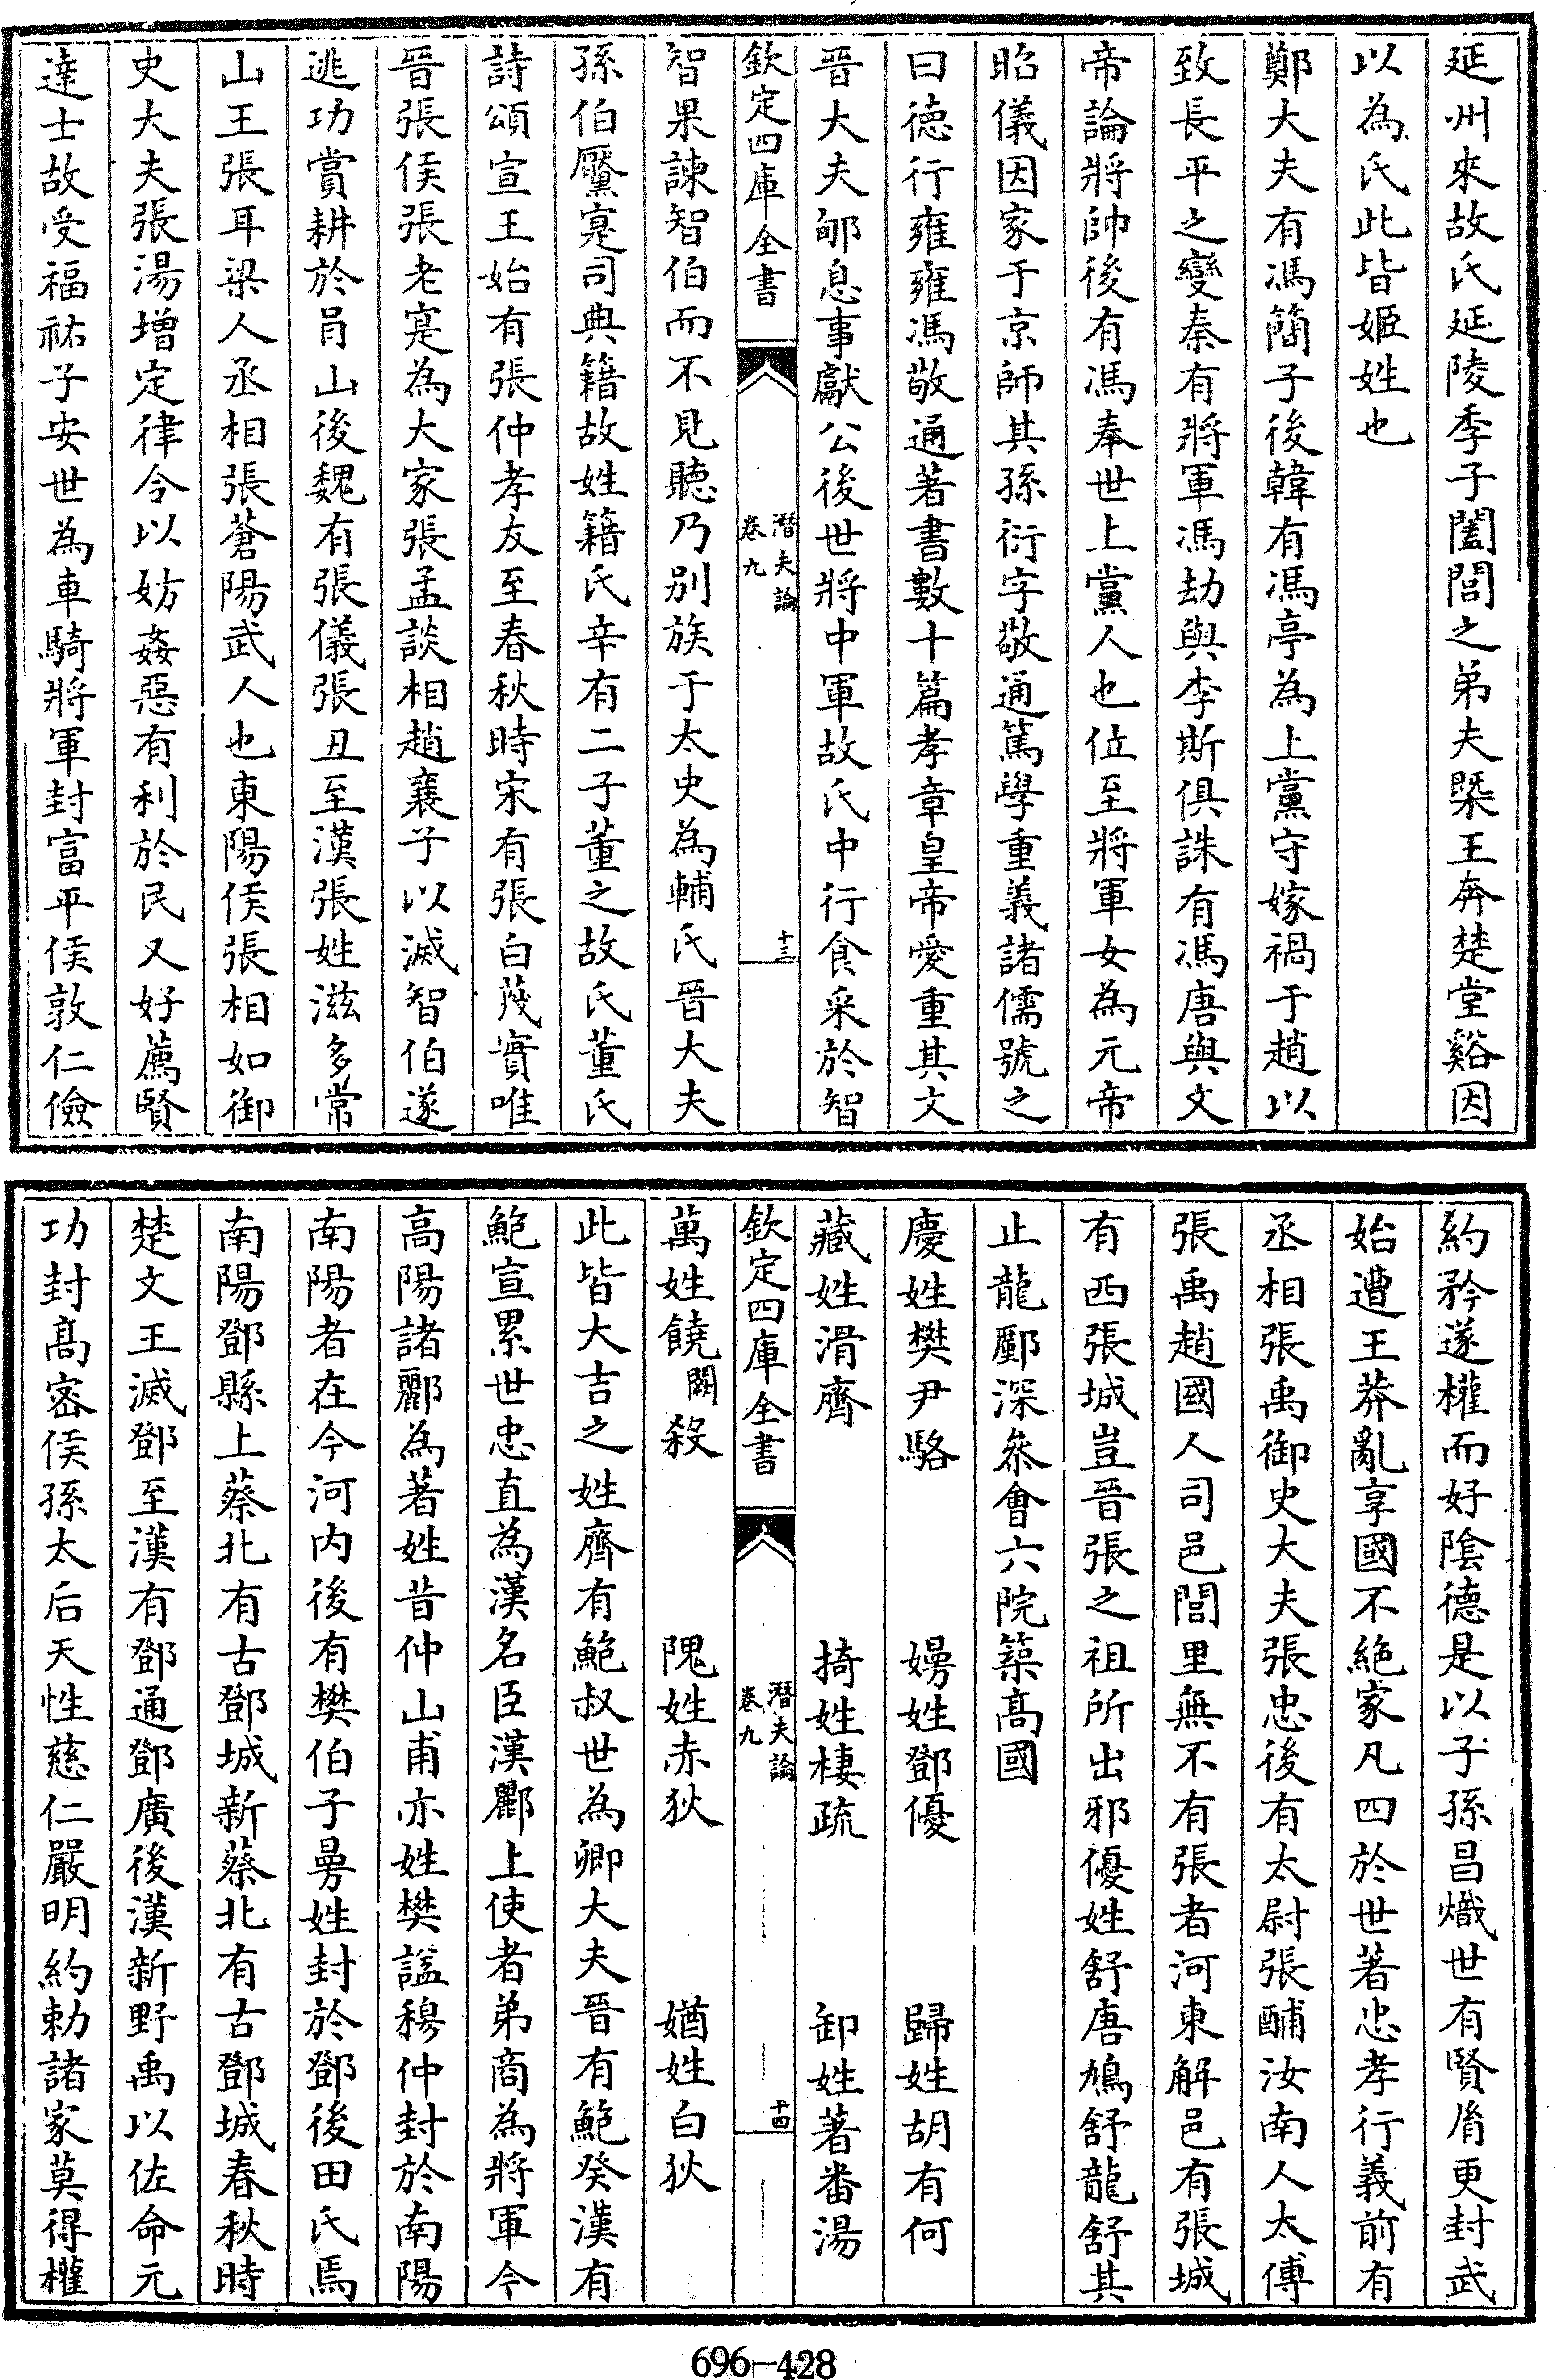 延州來故氏延陵季子闔閭之弟夫槩王奔楚堂谿因
以為氏此皆姬姓也
鄭大夫有馮簡子後韓有馮亭為上黨守嫁禍于趙以
致長平之變秦有將軍馮劫與李斯俱誅有馮唐與文
帝論將帥後有馮奉世上黨人也位至將軍女為元帝
昭儀因家于京師其孫衍字敬通篤學重義諸儒號之
曰德行雍雍馮敬通著書數十篇孝章皇帝愛重其文
晉大夫郇息事獻公後世將中軍故氏中行食采於智
欽定四庫全書
潛夫論
卷九
十三
智果諫智伯而不見聽乃别族于太史為輔氏晉大夫
孫伯黶寔司典籍故姓籍氏辛有二子董之故氏董氏
詩頌宣王始有張仲孝友至春秋時宋有張白蔑實唯
晉張侯張老寔為大家張孟談相趙襄子以滅智伯遂
逃功賞耕於肙山後魏有張儀張丑至漢張姓滋多常
山王張耳梁人丞相張蒼陽武人也東陽侯張相如御
史大夫張湯增定律令以妨姦惡有利於民又好薦賢
達士故受福祐子安世為車騎將軍封富平侯敦仁儉
約矜遂權而好陰德是以子孫昌熾世有賢胤更封武
始遭王莽亂享國不絶家凡四於世著忠孝行義前有
丞相張禹御史大夫張忠後有太尉張酺汝南人太傅
張禹趙國人司邑閭里無不有張者河東解邑有張城
有西張城豈晉張之祖所出邪優姓舒唐鳩舒龍舒其
止龍酈深叅會六院築髙國
慶姓樊尹駱　嫚姓鄧優　歸姓胡有何
藏姓滑齊　掎姓棲疏　卸姓著番湯
欽定四庫全書
潛夫論
卷九
十四
萬姓饒闕殺　隗姓赤狄　媨姓白狄
此皆大吉之姓齊有鮑叔世為卿大夫晉有鮑癸漢有
鮑宣累世忠直為漢名臣漢酈上使者弟商為將軍今
高陽諸酈為著姓昔仲山甫亦姓樊謚穆仲封於南陽
南陽者在今河内後有樊伯子曼姓封於鄧後田氏焉
南陽鄧縣上蔡北有古鄧城新蔡北有古鄧城春秋時
楚文王滅鄧至漢有鄧通鄧廣後漢新野禹以佐命元
功封髙密侯孫太后天性慈仁嚴明約勅諸家莫得權
696-428